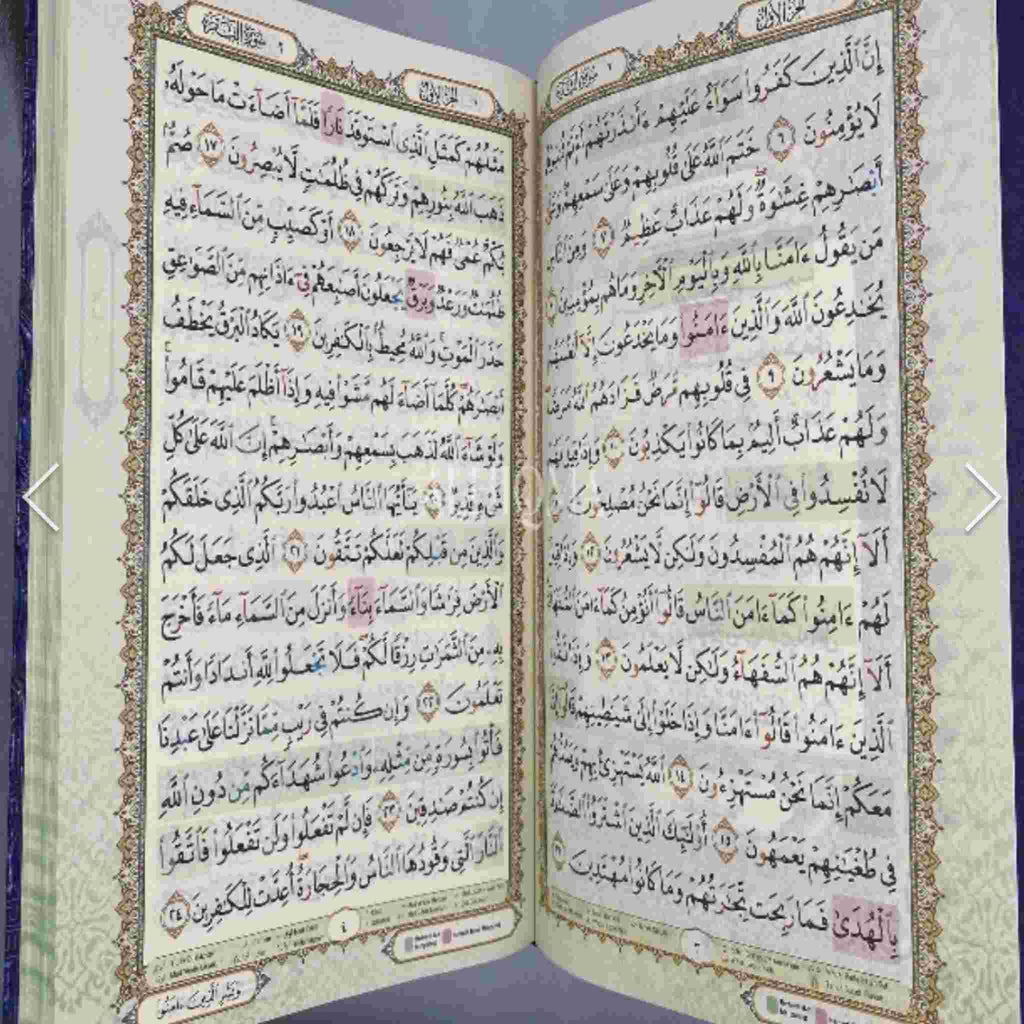 الجزء الأول
٢ سورة البقرة
إِنَّ ٱلَّذِينَ كَفَرُوا۟ سَوَآءٌ عَلَيْهِمْ ءَأَنذَرْتَهُمْ أَمْ لَمْ
لَا يُؤْمِنُونَ ٦ خَتَمَ ٱللَّهُ عَلَىٰ قُلُوبِهِمْ وَعَلَىٰ سَمْعِهِمْ وَعَلَىٰٓ
أَبْصَـٰرِهِمْ غِشَـٰوَةٌ وَلَهُمْ عَذَابٌ عَظِيمٌ ٧ وَمِنَ ٱلنَّاسِ
مَن يَقُولُ ءَامَنَّا بِٱللَّهِ وَبِٱلْيَوْمِ ٱلْـَٔاخِرِ وَمَا هُم بِمُؤْمِنِينَ ٨
يُخَـٰدِعُونَ ٱللَّهَ وَٱلَّذِينَ ءَامَنُوا۟ وَمَا يَخْدَعُونَ إِلَّآ أَنفُسَهُمْ
وَمَا يَشْعُرُونَ ٩ فِى قُلُوبِهِم مَّرَضٌ فَزَادَهُمُ ٱللَّهُ مَرَضًا
وَلَهُمْ عَذَابٌ أَلِيمٌۢ بِمَا كَانُوا۟ يَكْذِبُونَ ١٠ وَإِذَا قِيلَ لَهُمْ
لَا تُفْسِدُوا۟ فِى ٱلْأَرْضِ قَالُوٓا۟ إِنَّمَا نَحْنُ مُصْلِحُونَ ١١
أَلَآ إِنَّهُمْ هُمُ ٱلْمُفْسِدُونَ وَلَـٰكِن لَّا يَشْعُرُونَ ١٢ وَإِذَا قِيلَ
لَهُمْ ءَامِنُوا۟ كَمَآ ءَامَنَ ٱلنَّاسُ قَالُوٓا۟ أَنُؤْمِنُ كَمَآ ءَامَنَ ٱلسُّفَهَآءُ
أَلَآ إِنَّهُمْ هُمُ ٱلسُّفَهَآءُ وَلَـٰكِن لَّا يَعْلَمُونَ ١٣ وَإِذَا لَقُوا۟
ٱلَّذِينَ ءَامَنُوا۟ قَالُوٓا۟ ءَامَنَّا وَإِذَا خَلَوْا۟ إِلَىٰ شَيَـٰطِينِهِمْ قَالُوٓا۟ إِنَّا
مَعَكُمْ إِنَّمَا نَحْنُ مُسْتَهْزِءُونَ ١٤ ٱللَّهُ يَسْتَهْزِئُ بِهِمْ وَيَمُدُّهُمْ
فِى طُغْيَـٰنِهِمْ يَعْمَهُونَ ١٥ أُو۟لَـٰٓئِكَ ٱلَّذِينَ ٱشْتَرَوُا۟ ٱلضَّلَـٰلَةَ
بِٱلْهُدَىٰ فَمَا رَبِحَت تِّجَـٰرَتُهُمْ وَمَا كَانُوا۟ مُهْتَدِينَ ١٦
٣
سورة البقرة ٢
الجزء الأول ١
مَثَلُهُمْ كَمَثَلِ ٱلَّذِى ٱسْتَوْقَدَ نَارًا فَلَمَّآ أَضَآءَتْ مَا حَوْلَهُۥ
ذَهَبَ ٱللَّهُ بِنُورِهِمْ وَتَرَكَهُمْ فِى ظُلُمَـٰتٍ لَّا يُبْصِرُونَ ١٧ صُمٌّۢ
بُكْمٌ عُمْىٌ فَهُمْ لَا يَرْجِعُونَ ١٨ أَوْ كَصَيِّبٍ مِّنَ ٱلسَّمَآءِ فِيهِ
ظُلُمَـٰتٌ وَرَعْدٌ وَبَرْقٌ يَجْعَلُونَ أَصَـٰبِعَهُمْ فِىٓ ءَاذَانِهِم مِّنَ ٱلصَّوَٰعِقِ
حَذَرَ ٱلْمَوْتِ ۚ وَٱللَّهُ مُحِيطٌۢ بِٱلْكَـٰفِرِينَ ١٩ يَكَادُ ٱلْبَرْقُ يَخْطَفُ
أَبْصَـٰرَهُمْ ۖ كُلَّمَآ أَضَآءَ لَهُم مَّشَوْا۟ فِيهِ وَإِذَآ أَظْلَمَ عَلَيْهِمْ قَامُوا۟ ۚ
وَلَوْ شَآءَ ٱللَّهُ لَذَهَبَ بِسَمْعِهِمْ وَأَبْصَـٰرِهِمْ ۚ إِنَّ ٱللَّهَ عَلَىٰ كُلِّ
شَىْءٍ قَدِيرٌ ٢٠ يَـٰٓأَيُّهَا ٱلنَّاسُ ٱعْبُدُوا۟ رَبَّكُمُ ٱلَّذِى خَلَقَكُمْ
وَٱلَّذِينَ مِن قَبْلِكُمْ لَعَلَّكُمْ تَتَّقُونَ ٢١ ٱلَّذِى جَعَلَ لَكُمُ
ٱلْأَرْضَ فِرَٰشًا وَٱلسَّمَآءَ بِنَآءً وَأَنزَلَ مِنَ ٱلسَّمَآءِ مَآءً فَأَخْرَجَ
بِهِۦ مِنَ ٱلثَّمَرَٰتِ رِزْقًا لَّكُمْ ۖ فَلَا تَجْعَلُوا۟ لِلَّهِ أَندَادًا وَأَنتُمْ
تَعْلَمُونَ ٢٢ وَإِن كُنتُمْ فِى رَيْبٍ مِّمَّا نَزَّلْنَا عَلَىٰ عَبْدِنَا
فَأْتُوا۟ بِسُورَةٍ مِّن مِّثْلِهِۦ وَٱدْعُوا۟ شُهَدَآءَكُم مِّن دُونِ ٱللَّهِ
إِن كُنتُمْ صَـٰدِقِينَ ٢٣ فَإِن لَّمْ تَفْعَلُوا۟ وَلَن تَفْعَلُوا۟ فَٱتَّقُوا۟
ٱلنَّارَ ٱلَّتِى وَقُودُهَا ٱلنَّاسُ وَٱلْحِجَارَةُ ۖ أُعِدَّتْ لِلْكَـٰفِرِينَ ٢٤
٤
وَبَشِّرِ ٱلَّذِينَ ءَامَنُوا۟